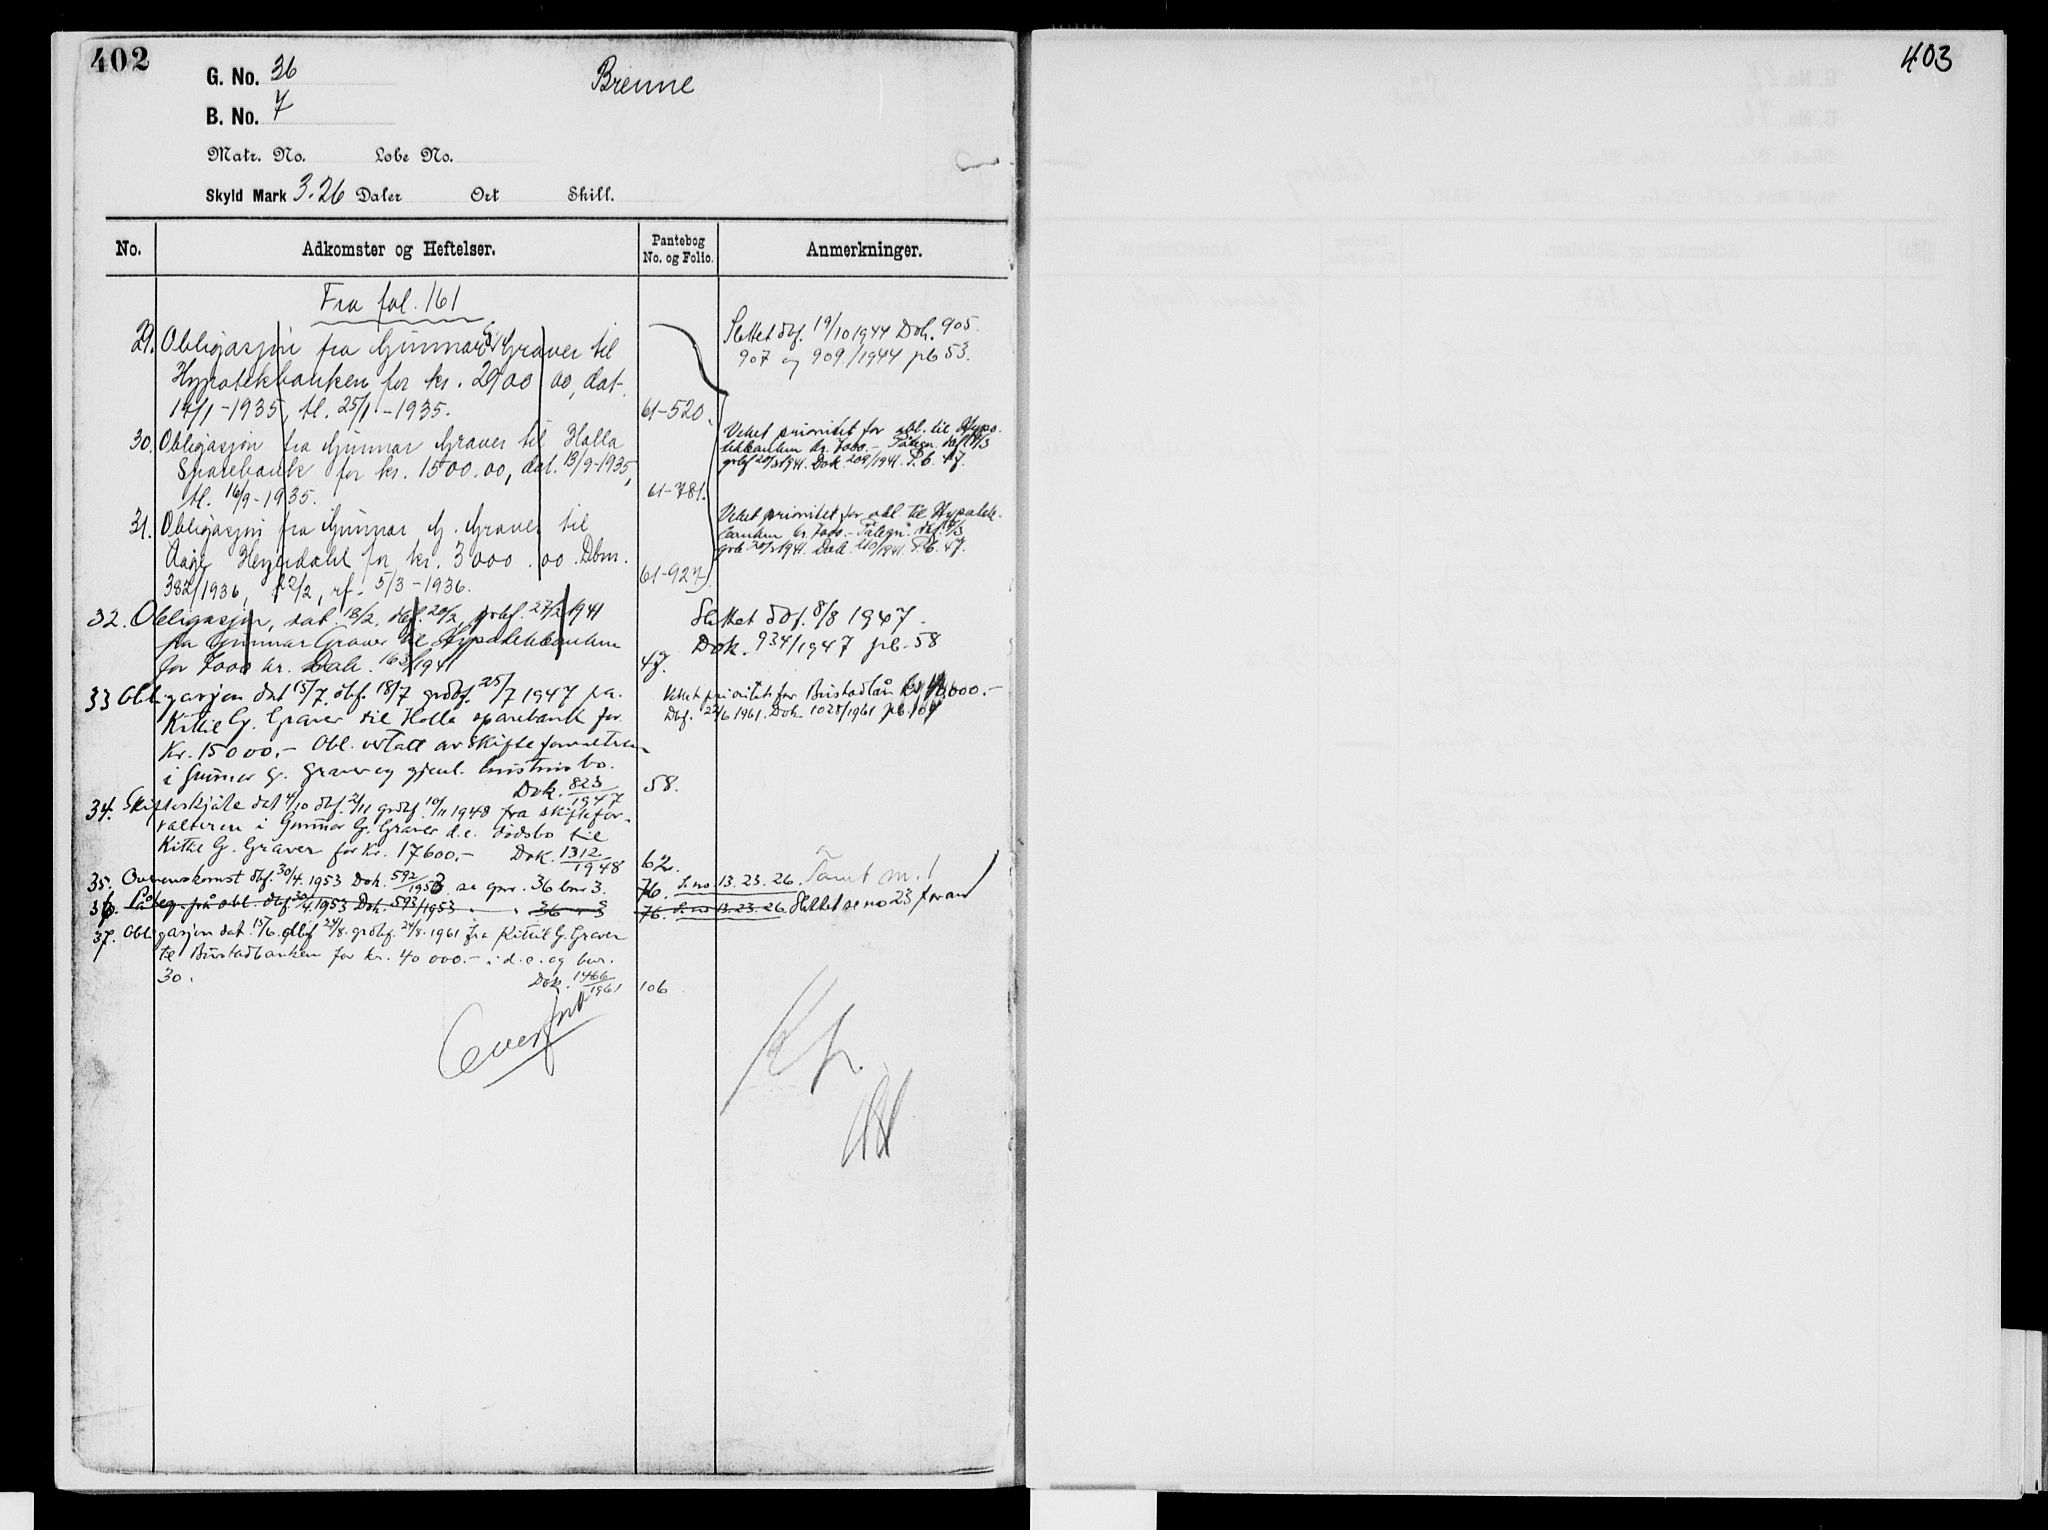 402
G. No. 36
Brenne
B. No. 7
Matr. No. Løbe No.
Skyld Mark 3.26 Daler Ort Skill.
No. Adkomster og Heftelser. Pantebog No. og Folio. Anmerkninger.
Fra fol. 161
29. Obligasjon fra Gunnar G. Graver til
Hypotekbanken for kr. 2900,00, dat.
14/1-1935, tl. 25/1-1935. 61-520.
Slettet dbf. 19/10 1944 Dok. 905.
907 og 909/1944 pb 53.
30. Obligasjon fra Gunnar Graver til Holla
Sparebank for kr. 1500.00, dat. 13/9-1935,
tl. 16/9-1935. 61-781.
Veket prioritet for obl. til Hypo-
tekbanken kr. 7000.- Påtegn. dbf.
grbf 20/3 1941. Dok. 209/1941. P.b. 47.
31. Obligasjon fra Gunnar G. Graver til
Aage Heyerdahl for kr. 3000.00. Dbnr.
382/1936, 22/2, rf. 5/3-1936. 61-927.
Veket prioritet for obl. til Hypotek-
banken kr. 7000.- Påtegn. dbf.
grb. 20/3 1941. Dok. 210/1941. P.b. 47.
32. Obligasjon, dat. 18/2, dbf. 20/2, grbf. 27/2 1941
fra Gunnar Graver til Hypotekbanken
for 7000 kr. Dok. 163/1941 47.
Slettet dbf. 8/8 1947.
Dok. 934/1947 pb. 58
33 Obligasjon dat 15/7, dbf. 18/7 grdbf. 25/7 1947 fra
Kittil G. Graver til Holla sparebank for
Kr. 15000.- Obl. vertatt av skifteforvaltren
i Gunnar G. Graver og gjenl. hustrus bo.
Dok. 823/1947 58.
Veket prioritet for Bustadlån kr 40,000.-
Dbf. 22/6 1961. Dok 1028/1961 pb.
34. Skifteskjøte dat 4/10 dbf. 2/11 grdbf. 10/11 1948 fra skiftefor-
valteren i Gunnar G. Graver d.e. dødsbo til
Kittil G. Graver for Kr. 17600.- Dok. 1312/1948 62.
35. Overenskomst dbf. 30/4. 1953 Dok. 592/1953 se gnr. 36 bnr 3. 76. S. no 13. 23. 26.
36. Påtegn. på obl. dbf. 30/4. 1953 Dok. 593/1953 " " 36 " 3 76. S. no 13. 23. 26 Slettet se no 23 foran
37. Obligasjon dat. 15/6. dbf 24/8. grdbf. 24/8. 1961 fra Kittil G. Graver
til Bustadbanken for kr. 40 000.- i d.e. og bnr.
30. Dok. 1466/1961 106
Overført
403